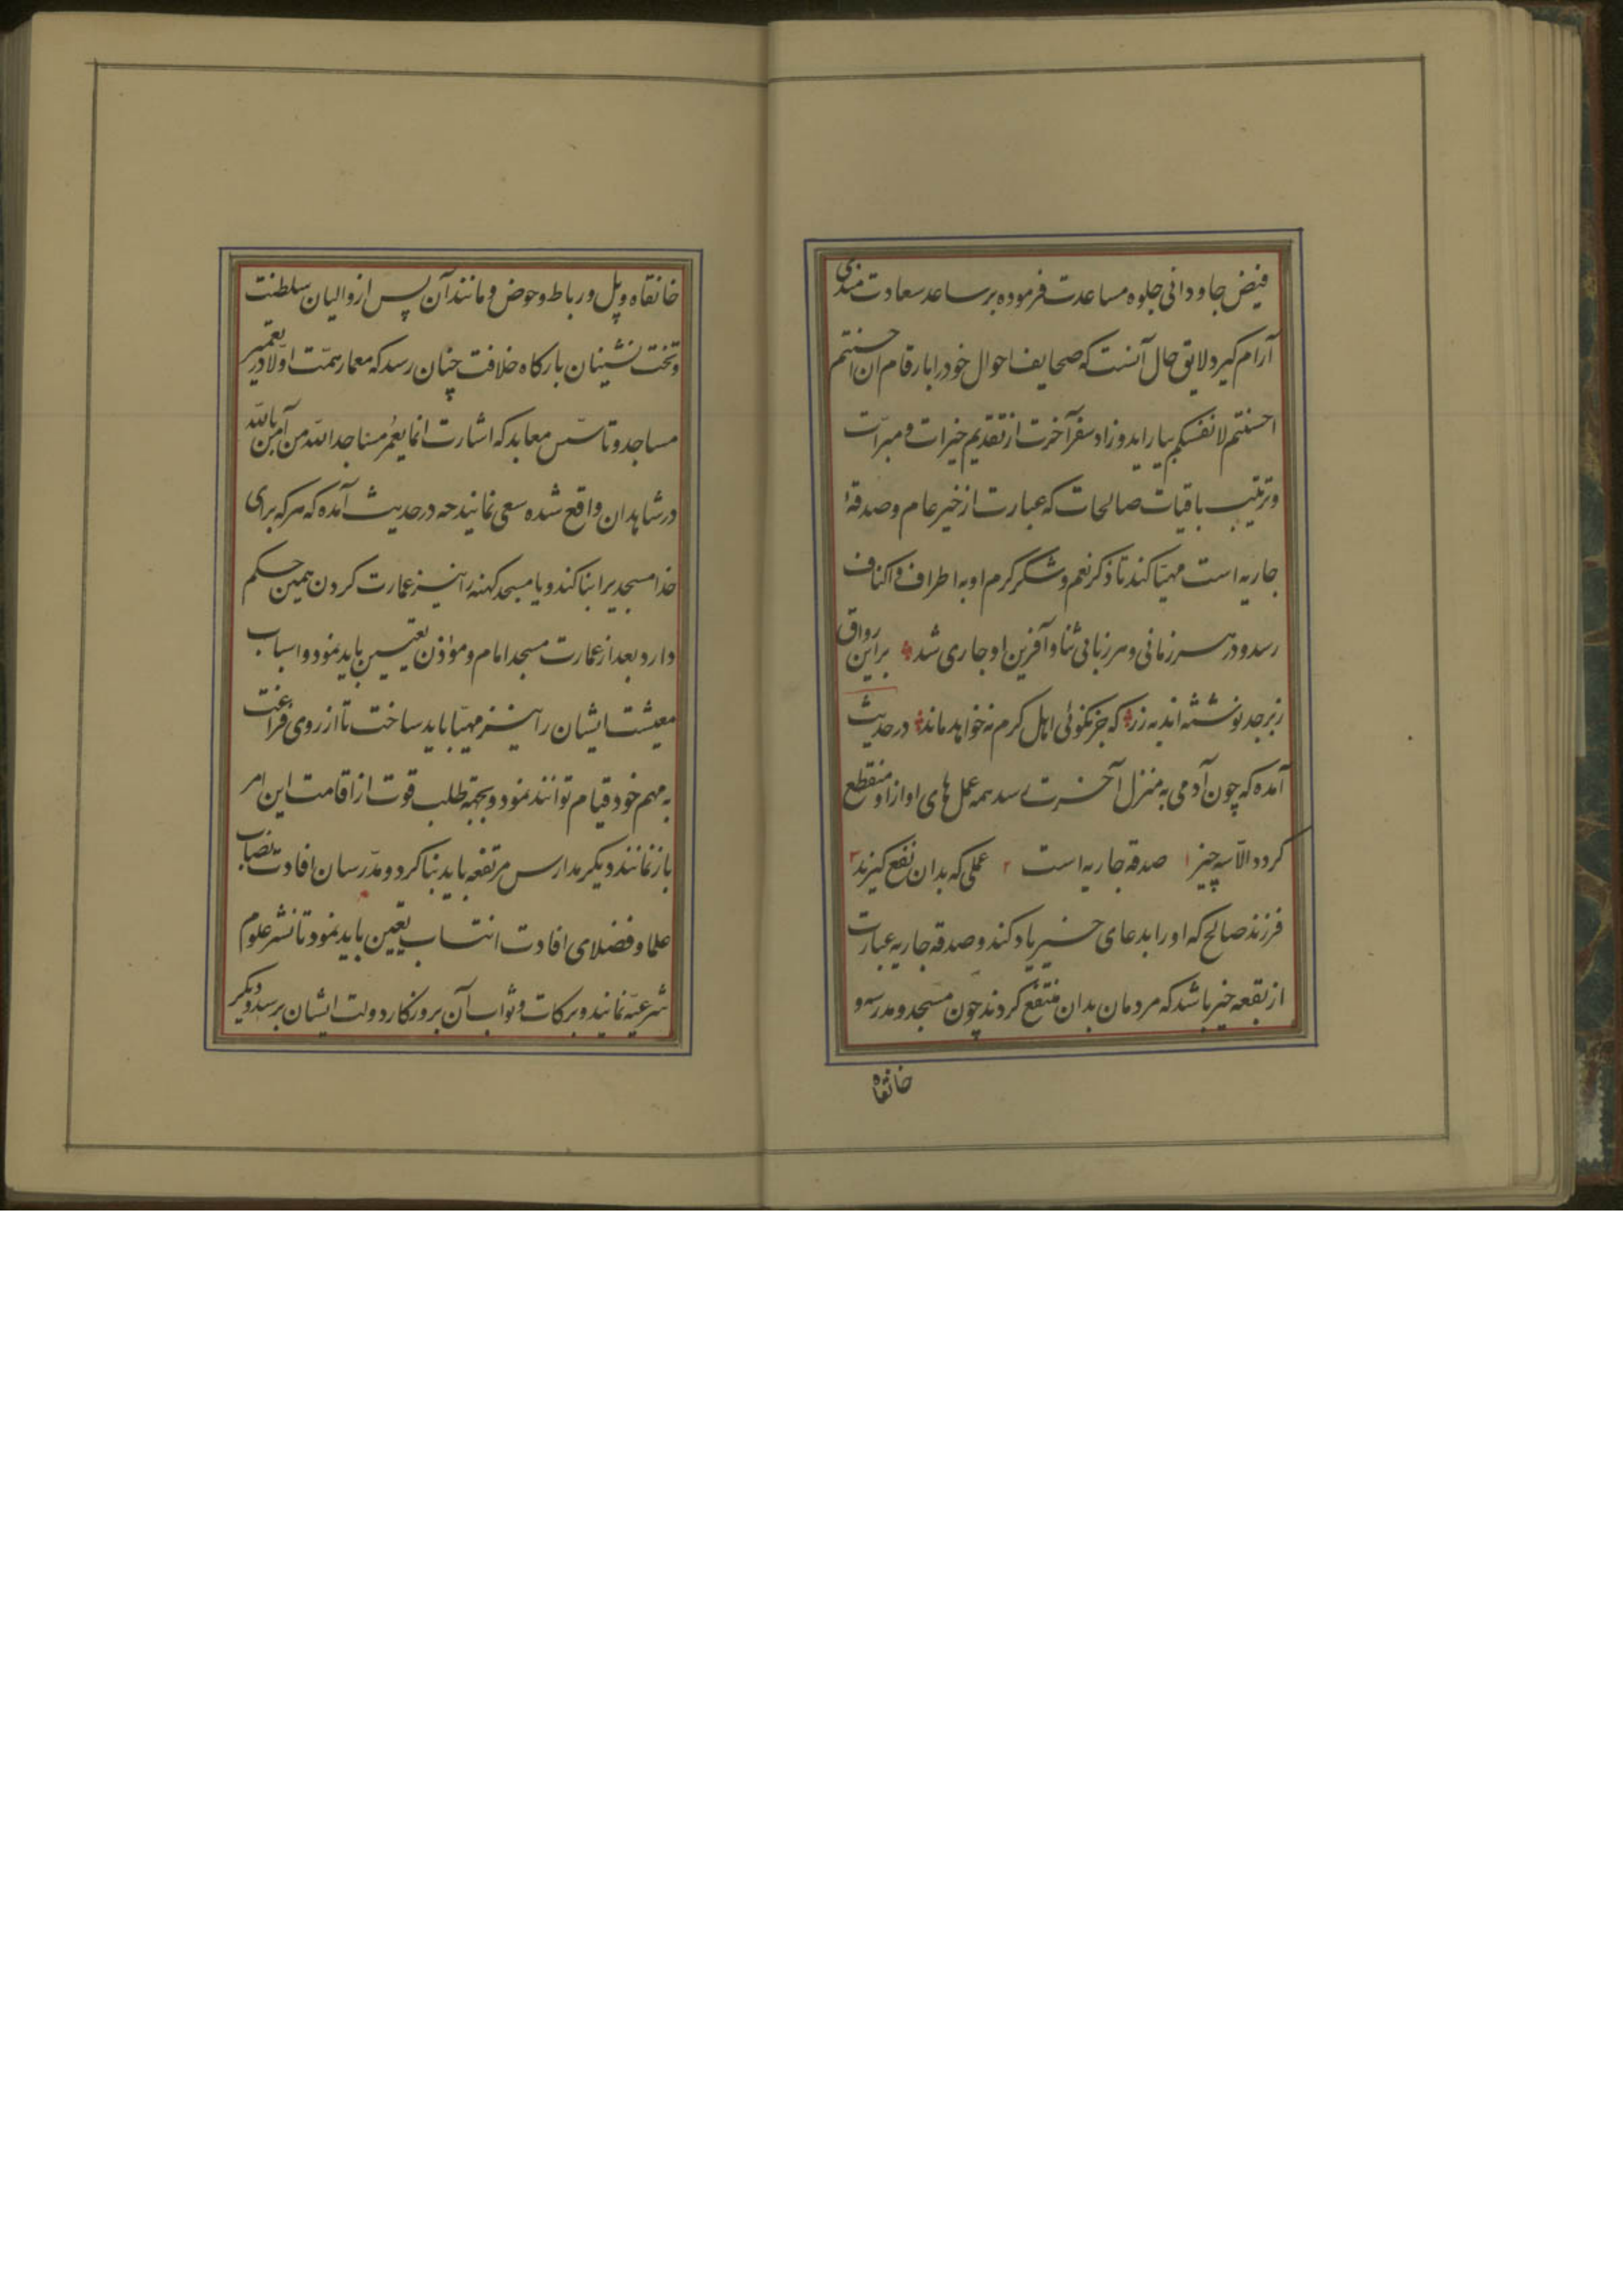 فیض جاودانی جلوه مساعدت فرموده بر ساعد سعادت مندی
آرام کیرد لایق حال آنست که صحایف احوال خود را بارقام ان احسنتم
احسنتم لانفسکم بیاراید و زاد سفر آخرت از تقدیم خیرات و مبرّات
و ترتیب باقیات صالحات که عبارت از خیر عام و صدقهٔ
جاریه است مهیّا کند تا ذکر نعم و شکر کرم او به اطراف و اکناف
رسد و در هر زمانی و هر زبانی ثنا و آفرین او جاری شد براین رواق
زبرجد نوشته اند به زر که جز نکوئی اهل کرم نه خواهد ماند در حدیث
آمده که چون آدمی به منزل آخرت رسد همه عمل های او از او منقطع
کردد الّا سه چیز ۱ صدقه جاریه است ۲ عملی که بدان نفع کیرند ۳
فرزند صالح که او را بدعای خیر یاد کند و صدقه جاریه عبارت
از بقعه خیر باشد که مردمان بدان منتفع کردند چون مسجد و مدرسه و
خانقاه
خانقاه و پل و رباط و حوض و مانند آن پس از والیان سلطنت
و تخت نشینان بارکاه خلافت چنان رسد که معمار همّت اوّلا در تعمیر
مساجد و تاسّس معابد که اشارت انما یعُمر مساجد الله من آمن بالله
در شاهد ان واقع شده سعی نمانید حه در حدیث آمده که هر که برای
خدا مسجدیرا بنا کند و یا مسجد کهنه را نیز عمارت کردن همین حکم
دارد بعد از عمارت مسجد امام و مواذن تعیین باید نمود و اسباب
معیشت ایشان را نیز مهیّا باید ساخت تا از روی فراغت
به مهم خود قیام توانند نمود و بجهة طلب قوت از اقامت این امر
باز نمانند دیکر مدارس مرتفعه باید بنا کرد و مدّرسان افادت نصاب
علما و فضلای افادت انتساب تعیین باید نمود تا نشر علوم
شرعیّه نمانید و برکات و ثواب آن بروزکار دولت ایشان برسد و دیکر